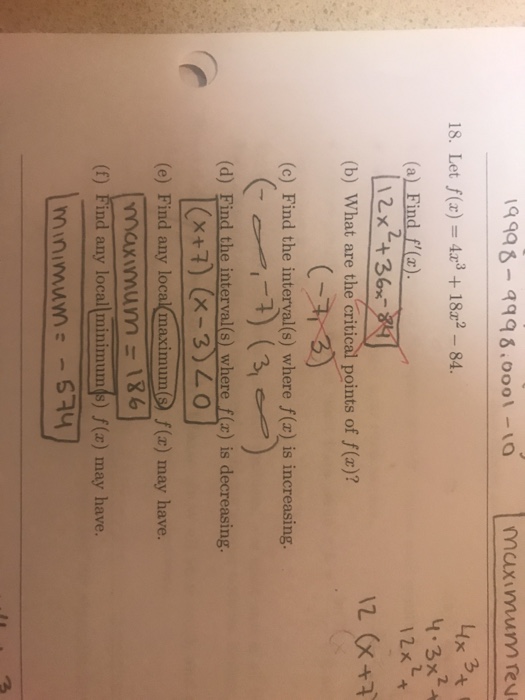 19998 - 9998.0001 - 10
maximum rev
18. Let f(x) = 4x³ + 18x² − 84.
4x³ +
(a) Find f′(x).
4·3x²
12x² + 36x - 84
12x² +
(b) What are the critical points of f(x)?
12 (x+7
(-7, 3)
(c) Find the interval(s) where f(x) is increasing.
(-∞, -7) (3, ∞)
(d) Find the interval(s) where f(x) is decreasing.
(x+7) (x-3) < 0
(e) Find any local maximum(s) f(x) may have.
maximum = 186
(f) Find any local minimum(s) f(x) may have.
minimum = - 574
3